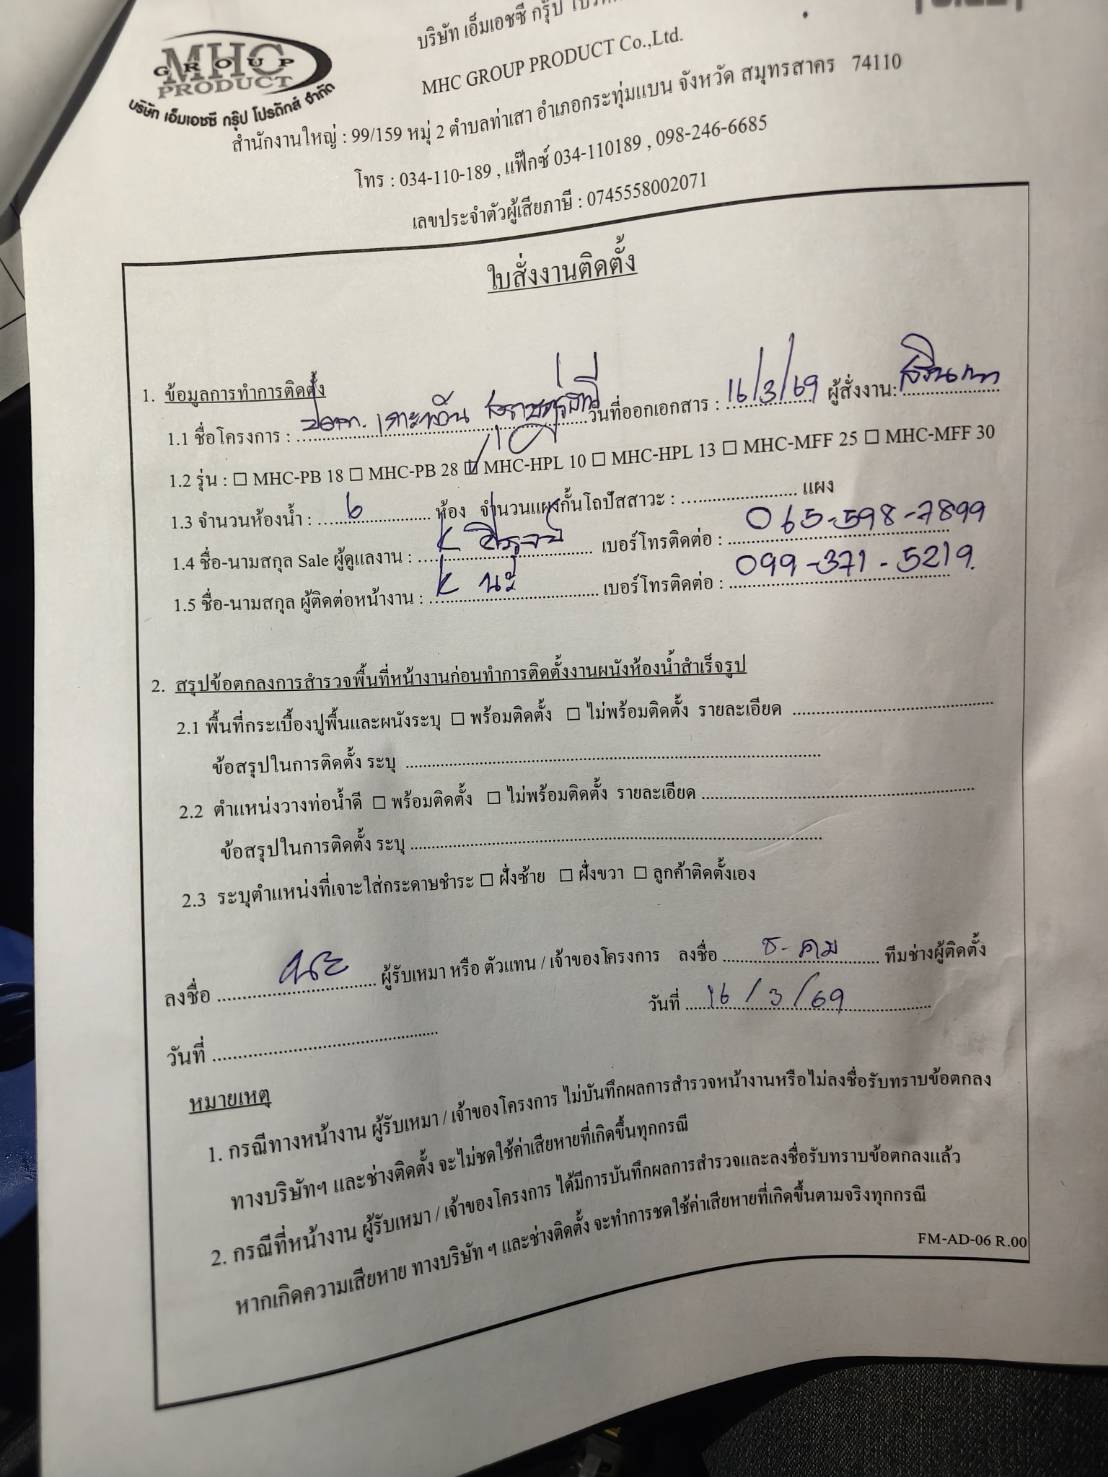 MHC
GROUP
PRODUCT
บริษัท เอ็มเอชซี กรุ๊ป โปรดักส์ จำกัด
บริษัท เอ็มเอชซี กรุ๊ป
MHC GROUP PRODUCT Co.,Ltd.
สำนักงานใหญ่ : 99/159 หมู่ 2 ตำบลท่าเสา อำเภอกระทุ่มแบน จังหวัด สมุทรสาคร 74110
โทร : 034-110-189 , แฟ๊กซ์ 034-110189 , 098-246-6685
เลขประจำตัวผู้เสียภาษี : 0745558002071
ใบสั่งงานติดตั้ง
1. ข้อมูลการทำการติดตั้ง
1.1 ชื่อโครงการ : วันที่ออกเอกสาร : 16/3/69 ผู้สั่งงาน:
1.2 รุ่น : ☐ MHC-PB 18 ☐ MHC-PB 28 ☑ MHC-HPL 10 ☐ MHC-HPL 13 ☐ MHC-MFF 25 ☐ MHC-MFF 30
1.3 จำนวนห้องน้ำ : 6 ห้อง จำนวนแผงกั้นโถปัสสาวะ : แผง
1.4 ชื่อ-นามสกุล Sale ผู้ดูแลงาน : K เบอร์โทรติดต่อ : 065-598-7899
1.5 ชื่อ-นามสกุล ผู้ติดต่อหน้างาน : K เบอร์โทรติดต่อ : 099-371-5219.
2. สรุปข้อตกลงการสำรวจพื้นที่หน้างานก่อนทำการติดตั้งงานผนังห้องน้ำสำเร็จรูป
2.1 พื้นที่กระเบื้องปูพื้นและผนังระบุ ☐ พร้อมติดตั้ง ☐ ไม่พร้อมติดตั้ง รายละเอียด
ข้อสรุปในการติดตั้ง ระบุ
2.2 ตำแหน่งวางท่อน้ำดี ☐ พร้อมติดตั้ง ☐ ไม่พร้อมติดตั้ง รายละเอียด
ข้อสรุปในการติดตั้ง ระบุ
2.3 ระบุตำแหน่งที่เจาะใส่กระดาษชำระ ☐ ฝั่งซ้าย ☐ ฝั่งขวา ☐ ลูกค้าติดตั้งเอง
ลงชื่อ ผู้รับเหมา หรือ ตัวแทน / เจ้าของโครงการ ลงชื่อ ทีมช่างผู้ติดตั้ง
วันที่ วันที่ 16/3/69
หมายเหตุ
1. กรณีทางหน้างาน ผู้รับเหมา / เจ้าของโครงการ ไม่บันทึกผลการสำรวจหน้างานหรือไม่ลงชื่อรับทราบข้อตกลง
ทางบริษัทฯ และช่างติดตั้ง จะไม่ชดใช้ค่าเสียหายที่เกิดขึ้นทุกกรณี
2. กรณีที่หน้างาน ผู้รับเหมา / เจ้าของโครงการ ได้มีการบันทึกผลการสำรวจและลงชื่อรับทราบข้อตกลงแล้ว
หากเกิดความเสียหาย ทางบริษัท ฯ และช่างติดตั้ง จะทำการชดใช้ค่าเสียหายที่เกิดขึ้นตามจริงทุกกรณี
FM-AD-06 R.00